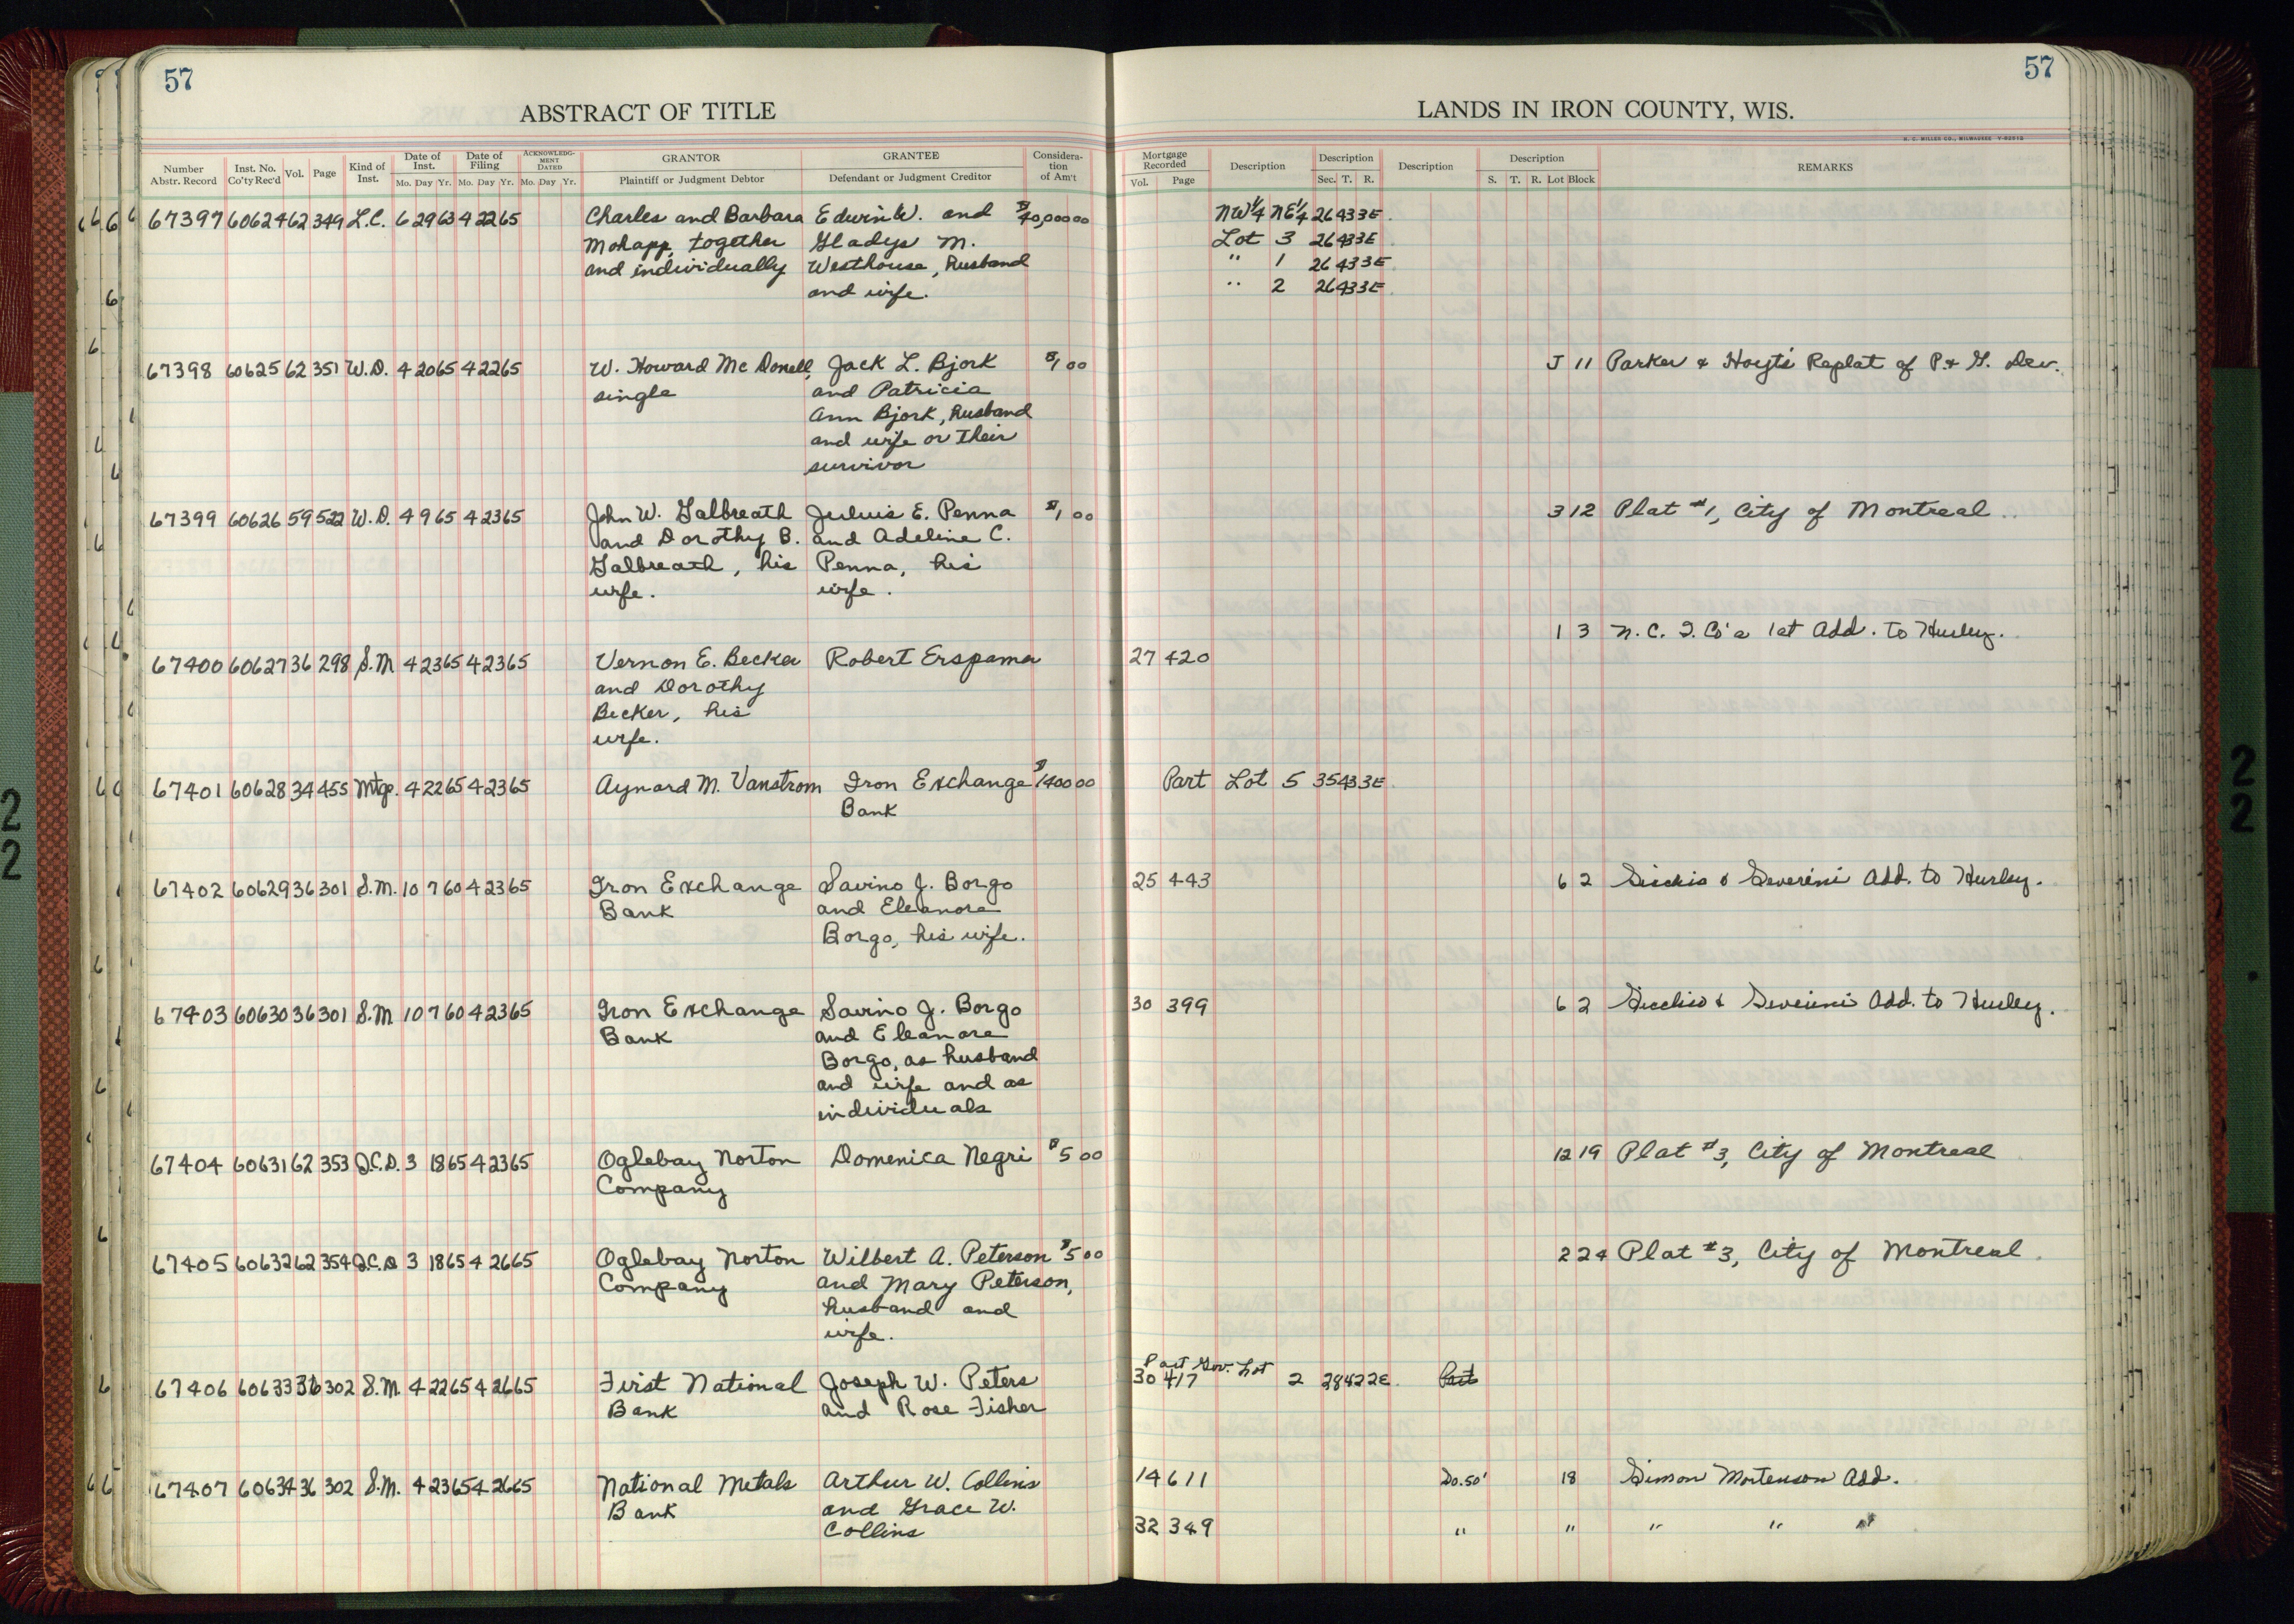 57
ABSTRACT OF TITLE
Number Abstr. Record | Inst. No. Co'ty Rec'd | Vol. | Page | Kind of Inst. | Date of Inst. Mo. Day Yr. | Date of Filing Mo. Day Yr. | ACKNOWLEDGMENT DATED Mo. Day Yr. | GRANTOR Plaintiff or Judgment Debtor | GRANTEE Defendant or Judgment Creditor | Consideration of Am't
67397 60624 62 349 L.C. 6 29 63 4 22 65 Charles and Barbara Edwin W. and $40,000 00
Mohapp, together Gladys M.
and individually Westhouse, husband
and wife.
67398 60625 62 351 W.D. 4 20 65 4 22 65 W. Howard Mc Donell, Jack L. Bjork $1 00
single and Patricia
Ann Bjork, husband
and wife or their
survivor
67399 60626 59 522 W.D. 4 9 65 4 23 65 John W. Galbreath Juluis E. Penna $1 00
and Dorothy B. and Adeline C.
Galbreath, his Penna, his
wife. wife.
67400 60627 36 298 S.M 4 23 65 4 23 65 Vernon E. Becker Robert Erspamer
and Dorothy
Becker, his
wife.
67401 60628 34 455 Mtge. 4 22 65 4 23 65 Aynard M. Vanstrom Iron Exchange $1400 00
Bank
67402 60629 36 301 S.M. 10 7 60 4 23 65 Iron Exchange Savino J. Borgo
Bank and Eleanora
Borgo, his wife.
67403 60630 36 301 S.M 10 7 60 4 23 65 Iron Exchange Savino J. Borgo
Bank and Eleanora
Borgo, as husband
and wife and as
individuals
67404 60631 62 353 Q.C.D. 3 18 65 4 23 65 Oglebay Norton Domenica Negri $5 00
Company
67405 60632 62 354 Q.C.D 3 18 65 4 26 65 Oglebay Norton Wilbert A. Peterson $5 00
Company and Mary Peterson,
husband and
wife.
67406 60633 36 302 S.M. 4 22 65 4 26 65 First National Joseph W. Peters
Bank and Rose Fisher
67407 60634 36 302 S.M. 4 23 65 4 26 65 National Metals Arthur W. Collins
Bank and Grace W.
Collins
57
LANDS IN IRON COUNTY, WIS.
H. C. MILLER CO., MILWAUKEE
Mortgage Recorded Vol. Page | Description | Description Sec. T. R. | Description | Description S. T. R. Lot Block | REMARKS
NW1/4 NE1/4 26 43 3E
Lot 3 26 43 3E
" 1 26 43 3E
" 2 26 43 3E
J 11 Parker & Hoyt's Replat of P. & G. Dev.
3 12 Plat #1, City of Montreal
1 3 N. C. I. Co's 1st Add. to Hurley.
27 420
Part Lot 5 35 43 3E
25 443 6 2 & Severini Add. to Hurley.
30 399 6 2 & Severini Add. to Hurley.
12 19 Plat #3, City of Montreal
2 24 Plat #3, City of Montreal
Part Gov. Lot
30 417 2 28 42 2E Part
14 611 So. 50' 18 Simon Mortenson Add.
32 349 " " " " "
22
22